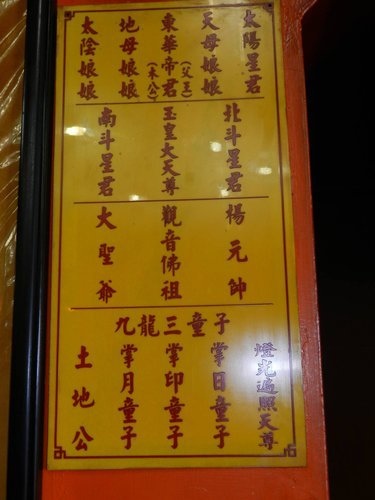 太陽星君
天母娘娘
東華帝君(父王)(木公)
地母娘娘
太陰娘娘
北斗星君
玉皇大天尊
南斗星君
楊元帥
觀音佛祖
大聖爺
九龍三童子
燈光遍照天尊
掌日童子
掌印童子
掌月童子
土地公